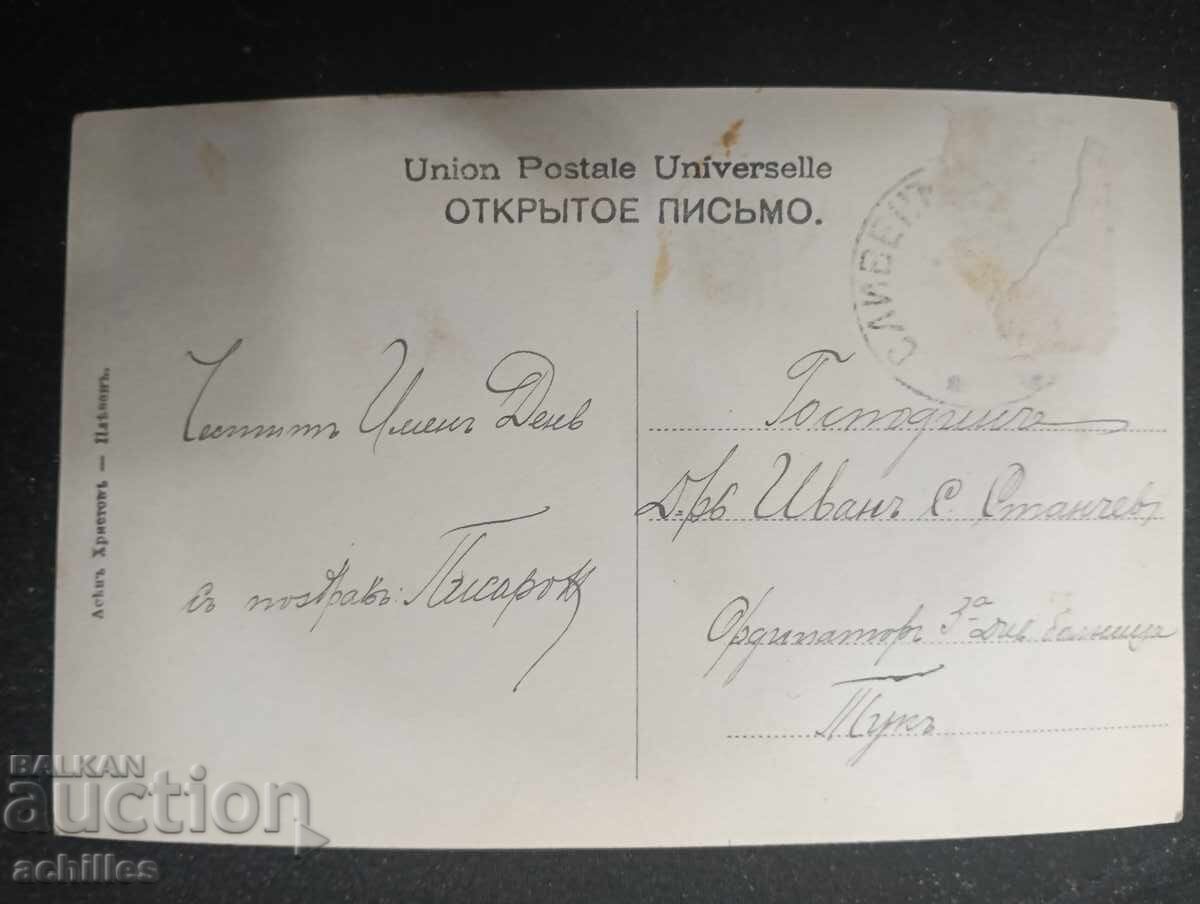 Union Postale Universelle
ОТКРЫТОЕ ПИСЬМО.
СЛИВЕНЪ
Асѣнъ Христовъ — Плѣвенъ.
Честитъ Именъ День
съ поздравъ: Писаров
Господина
Д-ръ Иванъ С. Станчевъ
Ординаторъ 3-а Див. болница
Тукъ
BALKAN
auction
achilles